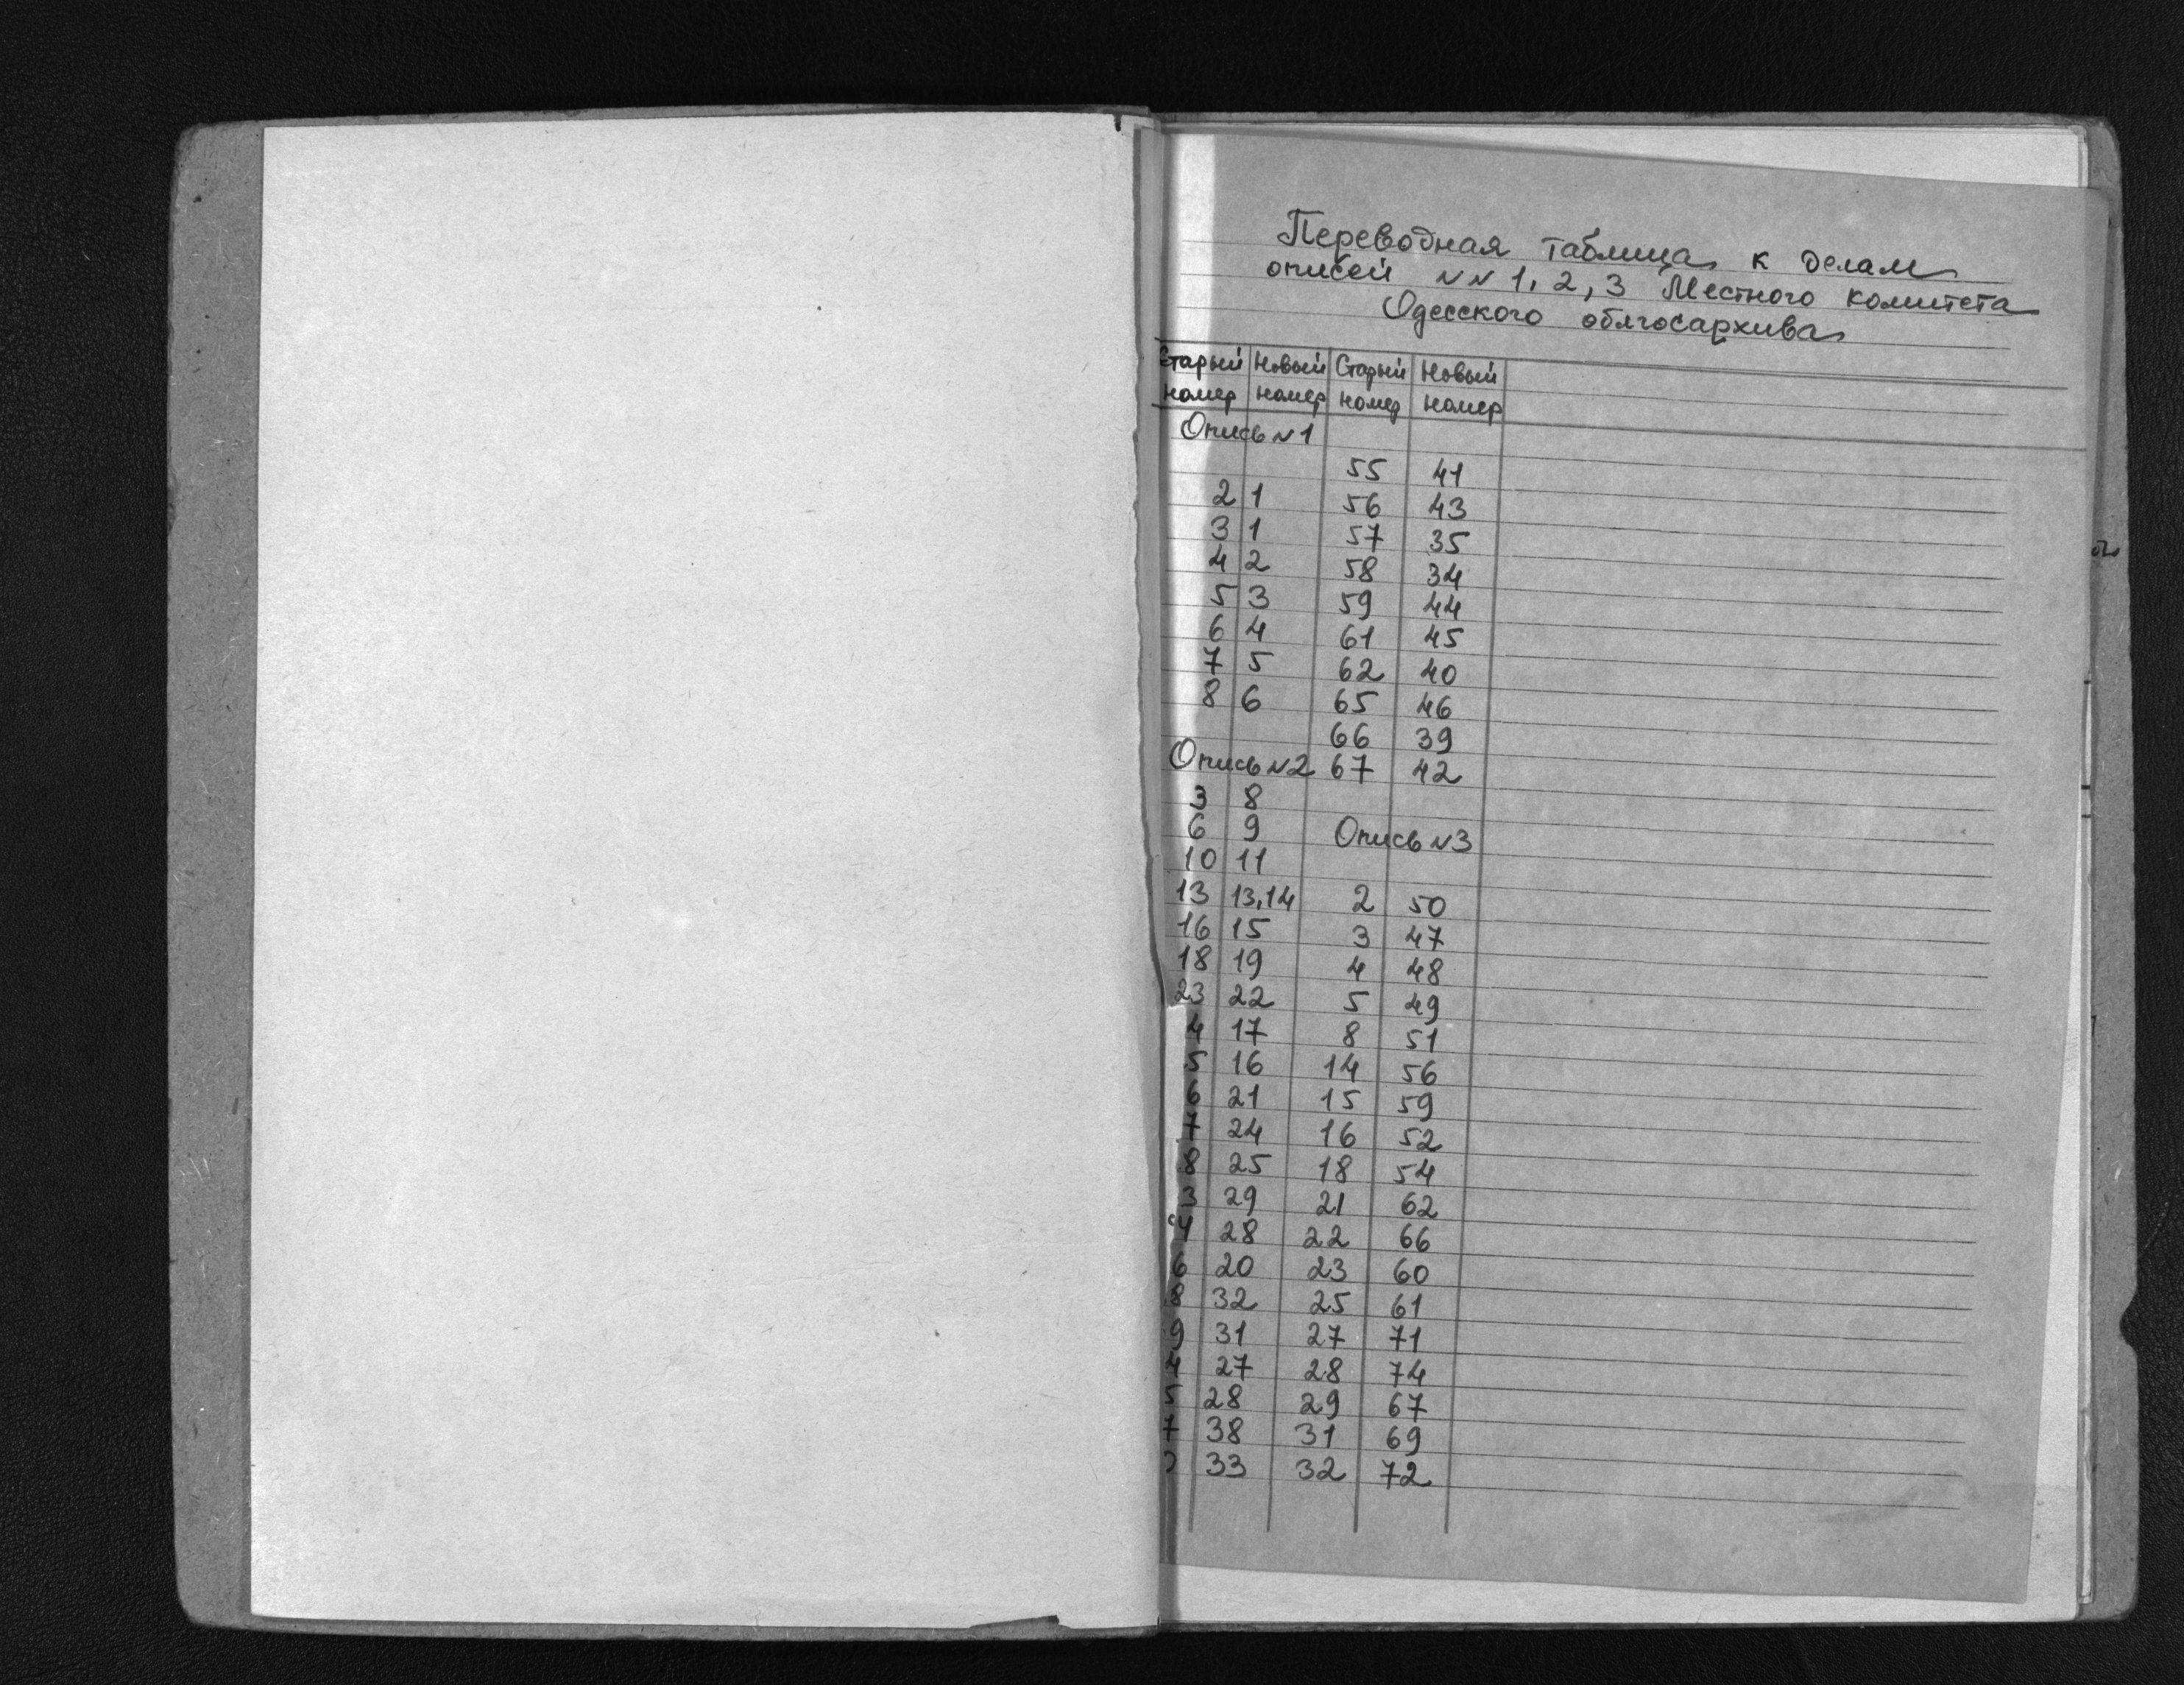 Переводная таблица к делам
описей NN 1, 2, 3 Местного комитета
Одесского облгосархива
Старый Новый Старый Новый
номер номер номер номер
Опись N1
55 41
2 1 56 43
3 1 57 35
4 2 58 34
5 3 59 44
6 4 61 45
7 5 62 40
8 6 65 46
66 39
Опись N2 67 42
3 8
6 9 Опись N3
10 11
13 13,14 2 50
16 15 3 47
18 19 4 48
23 22 5 49
4 17 8 51
5 16 14 56
6 21 15 59
7 24 16 52
8 25 18 54
3 29 21 62
4 28 22 66
6 20 23 60
8 32 25 61
9 31 27 71
4 27 28 74
5 28 29 67
7 38 31 69
33 32 72